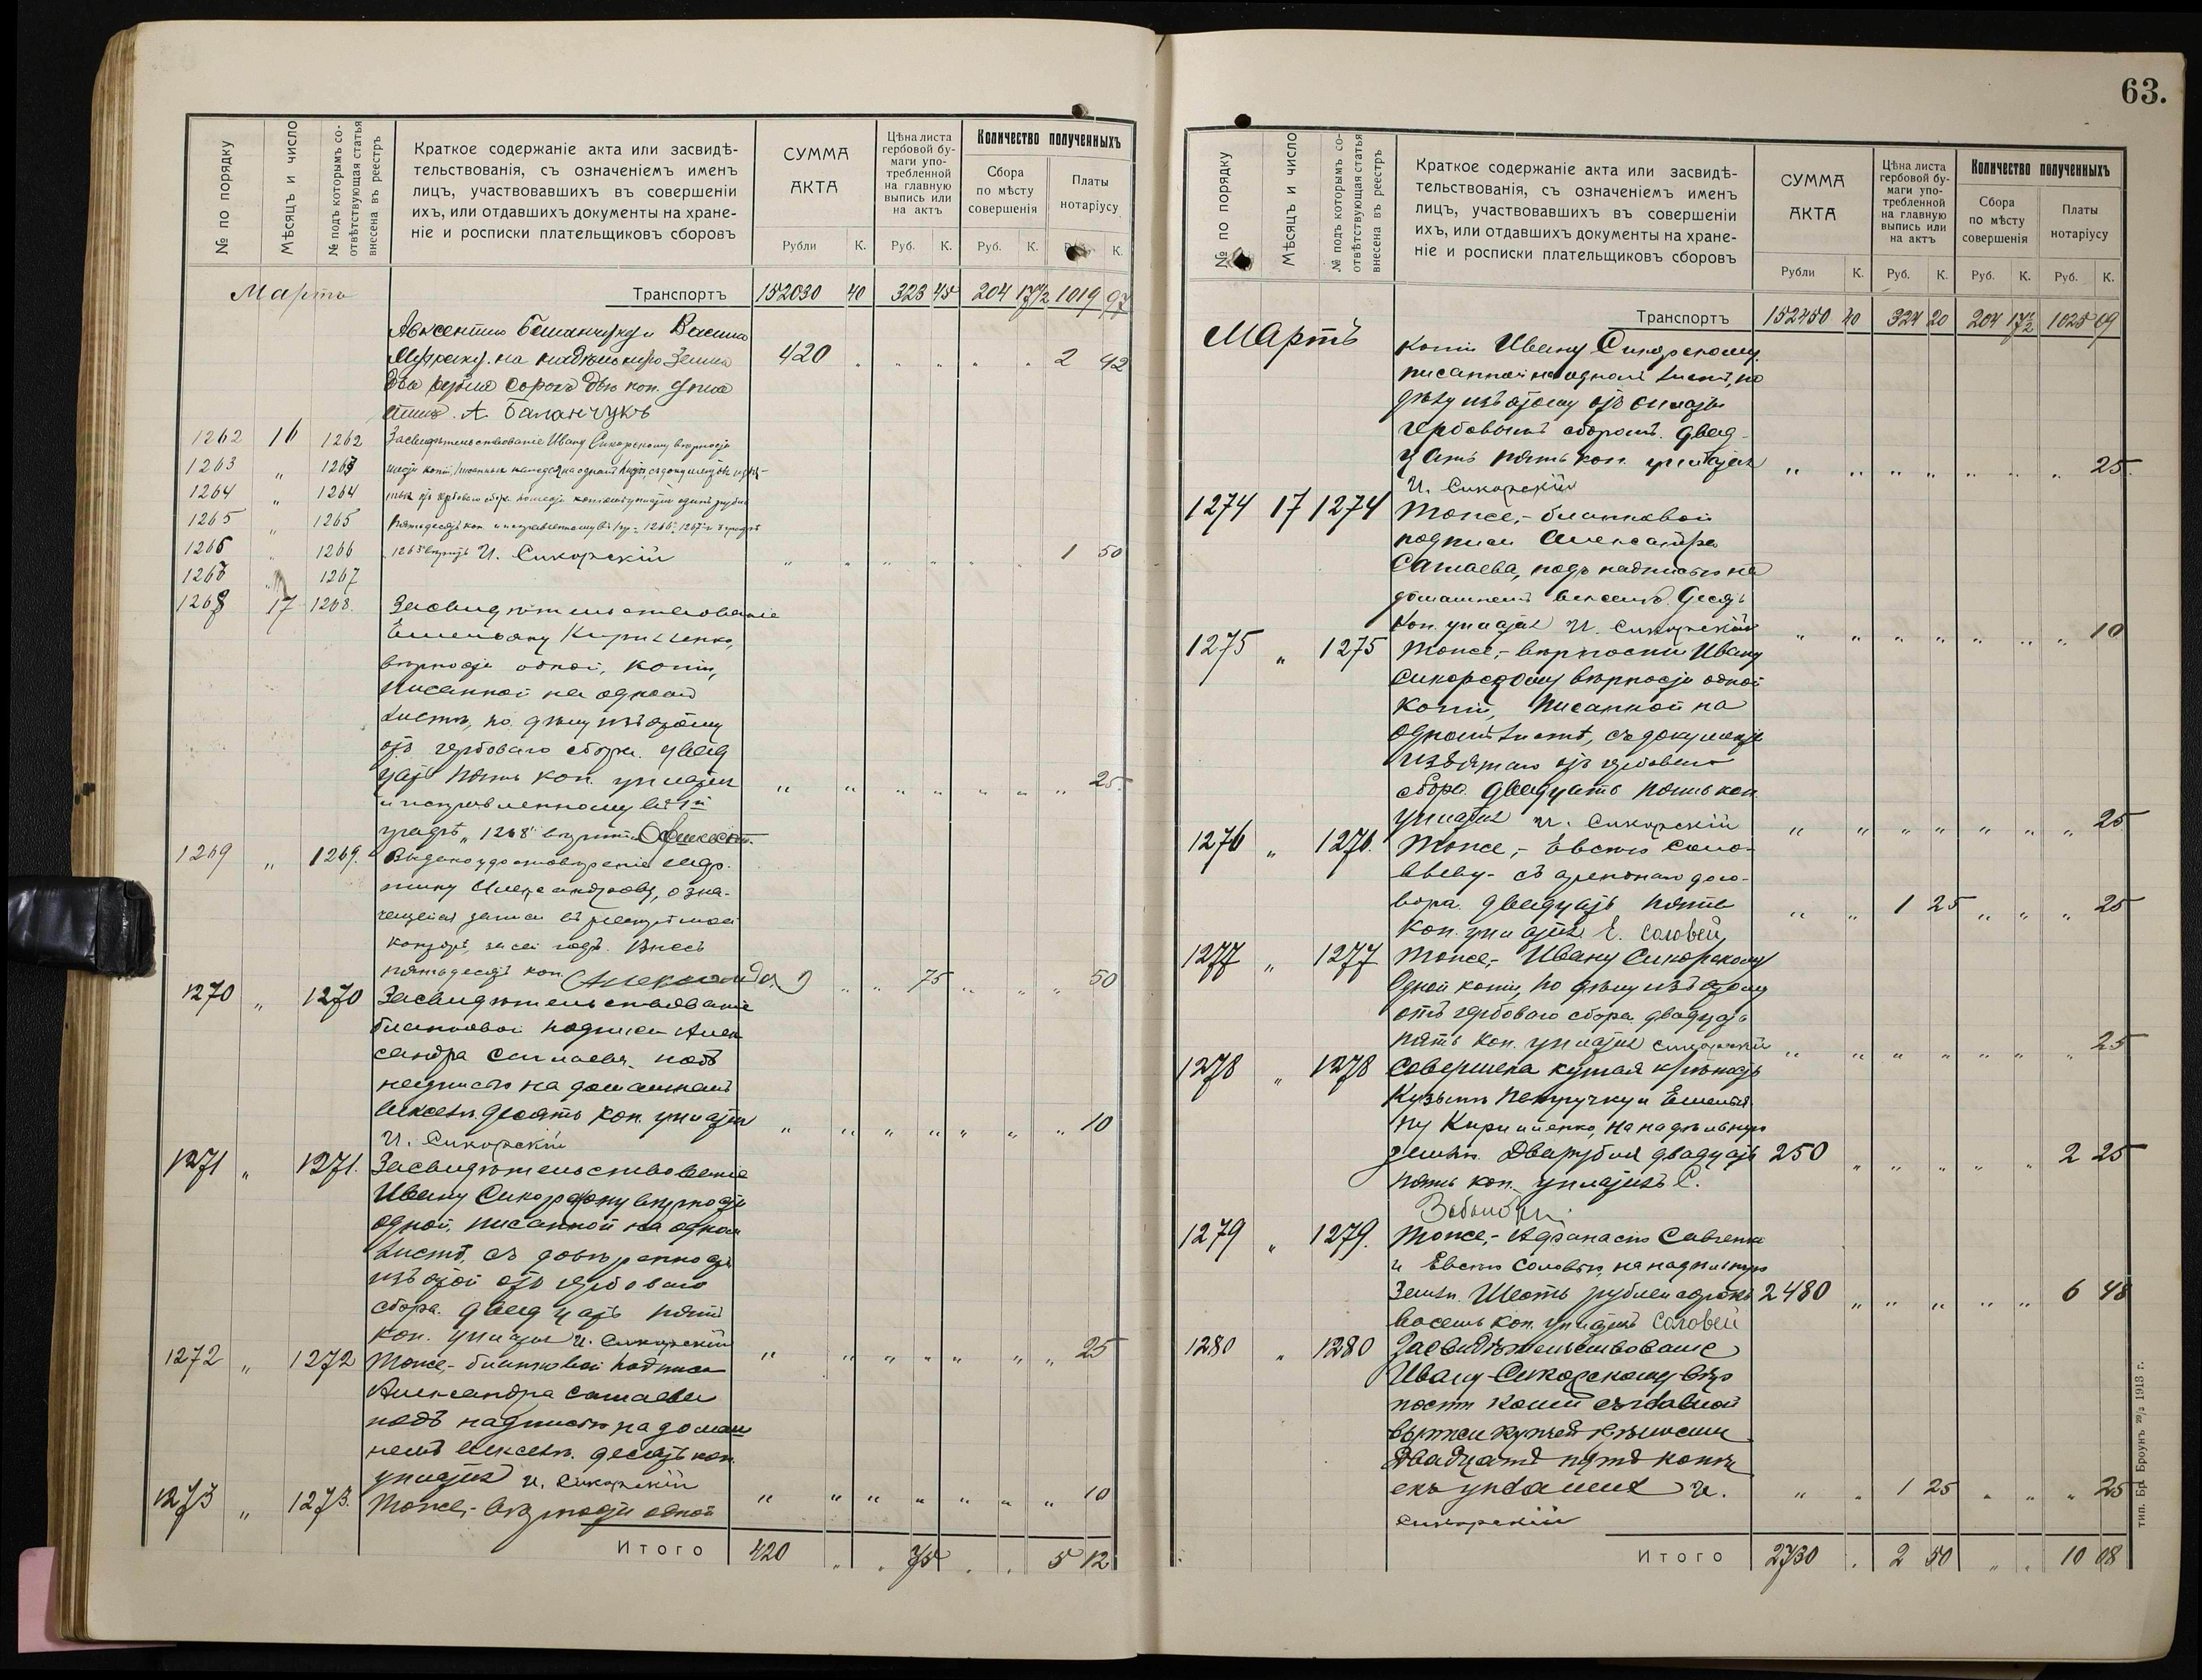 63.
№ по порядку
Мѣсяцъ и число
№ подъ которымъ со-
отвѣтствующая статья
внесена въ реестръ
Краткое содержаніе акта или засвидѣ-
тельствованія, съ означеніемъ именъ
лицъ, участвовавшихъ въ совершеніи
ихъ, или отдавшихъ документы на хране-
ніе и росписки плательщиковъ сборовъ
СУММА
АКТА
Рубли К.
Цѣна листа
гербовой бу-
маги упо-
требленной
на главную
выпись или
на актъ
Руб. К.
Количество полученныхъ
Сбора
по мѣсту
совершенія
Руб. К.
Платы
нотаріусу
К.
Мартъ Транспортъ 152030 40 323 45 204 17½ 1019 97
420 " " " " " 2 42
два рубля сорокъ двѣ коп. упла
А. Баланчукъ
1262 16 1262 Засвидѣтельствованіе Ивану Сикорскому вѣрности
1263 " 1263
1264 " 1264
1265 " 1265
1266 " 1266 И. Сикорскій " " " " " 1 50
1267 " 1267
1268 17 1268. Засвидѣтельствованіе
Емельяну Кириленко,
вѣрности одной, копіи,
писанной на одномъ
листѣ, по дѣлу изъятому
отъ гербоваго сбора. двад
цать пять коп. уплатилъ " " " " " " " 25.
и исправленному въ 1й
графѣ „1268" вѣрить
1269 " 1269. Выдано удостовѣреніе
Александрову, озна-
записи въ реестрѣ моей
конторы, за сей годъ. Внесъ
пятьдесятъ коп. " " 75 " " " 50
1270 " 1270 Засвидѣтельствованіе
бланковой подписи Алек
сандра Сатаева, подъ
надписью на домашнемъ
векселѣ. десять коп. уплатилъ " " " " " " " 10
И. Сикорскій
1271 " 1271. Засвидѣтельствованіе
Ивану Сикорскому вѣрности
одной, писанной на одномъ
листѣ, съ довѣренности
изъятой отъ гербоваго
сбора. двадцать пять
коп. уплатилъ И. Сикорскій " " " " " " " 25
1272 " 1272 Тоже,- бланковой подписи
Александра Сатаева
подъ надписью на домаш
немъ векселѣ. десять коп.
уплатилъ И. Сикорскій " " " " " " " 10
1273 " 1273. Тоже,- вѣрности одной
Итого 420 " " 75 " " 5 12
№ по порядку
Мѣсяцъ и число
№ подъ которымъ со-
отвѣтствующая статья
внесена въ реестръ
Краткое содержаніе акта или засвидѣ-
тельствованія, съ означеніемъ именъ
лицъ, участвовавшихъ въ совершеніи
ихъ, или отдавшихъ документы на хране-
ніе и росписки плательщиковъ сборовъ
СУММА
АКТА
Рубли К.
Цѣна листа
гербовой бу-
маги упо-
требленной
на главную
выпись или
на актъ
Руб. К.
Количество полученныхъ
Сбора
по мѣсту
совершенія
Руб. К.
Платы
нотаріусу
Руб. К.
Транспортъ 152450 40 324 20 204 17½ 1025 09
Мартъ копіи Ивану Сикорскому,
писанной на одномъ листѣ, по
дѣлу изъятому отъ оплаты
гербовымъ сборомъ. двад-
цать пять коп. уплатилъ " " " " " " " 25.
И. Сикорскій
1274 17 1274 Тоже,- бланковой
подписи Александра
Сатаева, подъ надписью на
домашнемъ векселѣ. десять
коп. уплатилъ И. Сикорскій " " " " " " " 10
1275 " 1275 Тоже,- вѣрности Ивану
Сикорскому вѣрности одной
копіи, писанной на
одномъ листѣ, съ документа
изъятаго отъ гербоваго
сбора. двадцать пять коп.
уплатилъ И. Сикорскій " " " " " " " 25
1276 " 1276. Тоже,- Евсѣю Соло-
вьеву- съ аренднаго дого-
вора. двадцать пять " " 1 25 " " " 25
коп. уплатилъ Е. Соловей
1277 " 1277 Тоже,- Ивану Сикорскому
Одной копіи, по дѣлу изъятому
отъ гербоваго сбора. двадцать
пять коп. уплатилъ Сикорскій " " " " " " " 25
1278 " 1278 Совершена купчая крѣпость
Кузьмѣ Петручку и Емелья
ну Кириленко, на надѣльную
землю. Два рубля двадцать 250 " " " " " 2 25
пять коп. уплатилъ С.
1279 " 1279. Тоже,- Афанасію Савченко
и Евсѣю Соловью, на надѣльную
землю. Шесть рублей сорокъ 2480 " " " " " 6 48
восемь коп. уплатилъ Соловей
1280 " 1280 Засвидѣтельствованіе
Ивану Сикорскому вѣр
ности копіи съ главной
выписи купчей крѣпости.
Двадцать пять копѣ
екъ уплатилъ И. " " 1 25 " " " 25
Сикорскій
Итого 2730 " 2 50 " " 10 08
тип. Бр. Броунъ 20/2 1913 г.